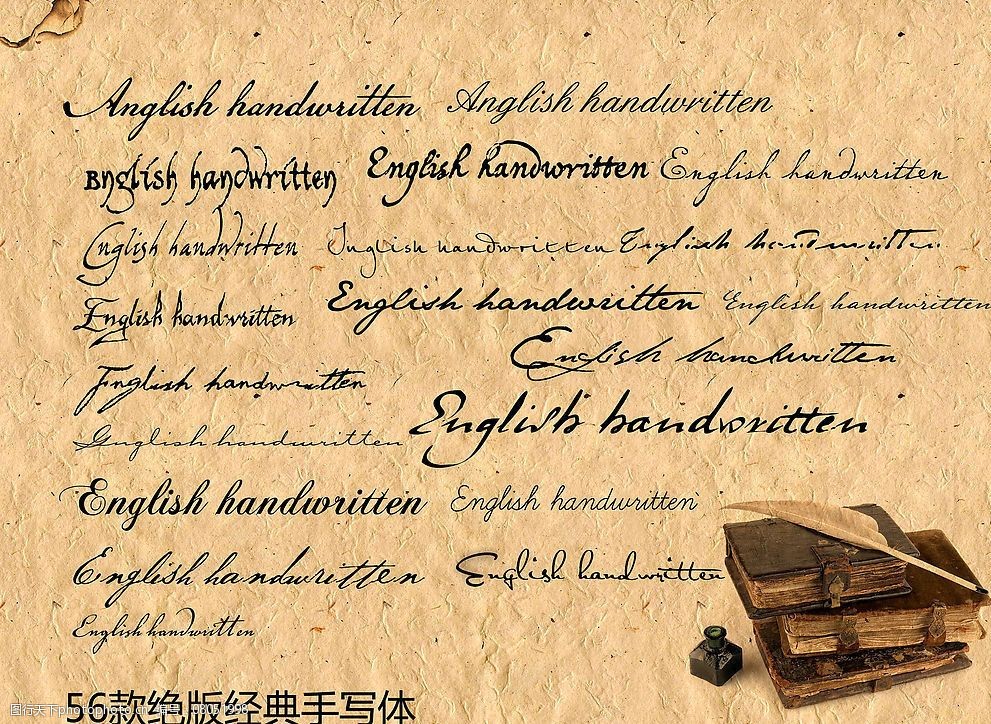 Anglish handwritten Anglish handwritten
English handwritten English handwritten English handwritten
English handwritten English handwritten English handwritten
English handwritten English handwritten English handwritten
English handwritten
English handwritten
English handwritten
English handwritten
English handwritten English handwritten
English handwritten English handwritten
English handwritten
56款绝版经典手写体
图行天下photophoto.cn 编号